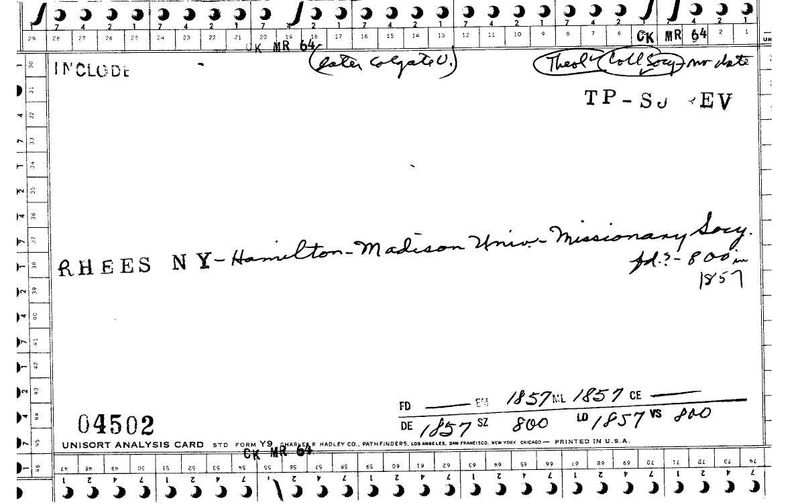 29 28 27 26 25 24 23 22 21 20 19 18 17 16 15 14 13 12 11 10 9 8 7 6 5 4 3 2 1
CK MR 64 CK MR 64
INCLUDE (later Colgate U.) Theol Coll Socy - no date
TP - SU REV
RHEES NY - Hamilton - Madison Univ. - Missionary Socy.
fd.? - 800 in
1857
FD — EM 1857 ML 1857 CE —
04502 DE 1857 SZ 800 LD 1857 VS 800
UNISORT ANALYSIS CARD STD FORM Y9 CHARLES R HADLEY CO., PATHFINDERS, LOS ANGELES, SAN FRANCISCO, NEW YORK CHICAGO — PRINTED IN U.S.A.
CK MR 64